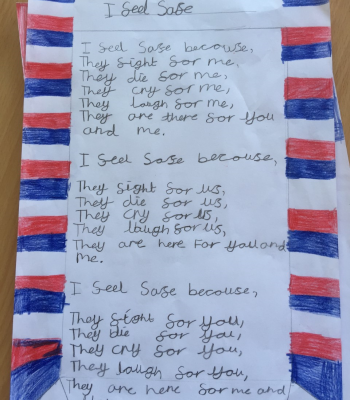 I feel Safe
I feel Safe because,
They fight for me,
They die for me,
They cry for me,
They laugh for me,
They are there for you
and me.
I feel Safe because,
They fight for us,
They die for us,
They cry for us,
They laugh for us,
They are here For you and
me.
I feel Safe because,
They fight for you,
They die for you,
They cry for you,
They laugh for you,
They are here for me and